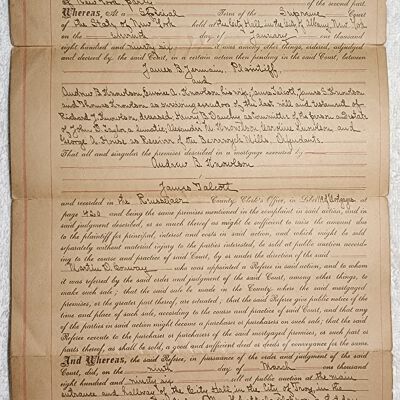 of New York, party of the second part.
Whereas, At a Special Term of the Supreme Court
of the State of New York held at the City Hall in the City of Albany, New York
on the second day of January one thousand
eight hundred and ninety six it was among other things, ordered, adjudged
and decreed by the said Court, in a certain action then pending in the said Court, between
James B. Jermain, Plaintiff,
and
Andrew B. Knowlson, James A. Knowlson, James Talcott, James A. Knowlson
and Thomas Knowlson as surviving executors of the last will and testament of
Richard J. Knowlson, deceased, Henry B. Dauchy as committee of the person and estate
of John B. Taylor a lunatic, Alexander N. Knowlson, Caroline Knowlson, and
George A. as Receiver of the Mills, Defendants.
That all and singular the premises described in a mortgage executed by
Andrew B. Knowlson
to
James Talcott
and recorded in the Rensselaer County Clerk's Office, in Liber of Mortgages, at
page 420 and being the same premises mentioned in the complaint in said action, and in
said judgment described, or so much thereof as might be sufficient to raise the amount due
to the plaintiff for principal, interest and costs in said action, and which might be sold
separately without material injury to the parties interested, be sold at public auction accord-
ing to the course and practice of said Court, by or under the direction of the said
Martin D. Conway who was appointed a Referee in said action, and to whom
it was referred by the said order and judgment of the said Court, among other things, to
make such sale; that the said sale be made in the County where the said mortgaged
premises, or the greater part thereof, are situated; that the said Referee give public notice of the
time and place of such sale, according to the course and practice of said Court, and that any
of the parties in said action might become a purchaser or purchasers on such sale; that the said
Referee execute to the purchaser or purchasers of the said mortgaged premises, or such part or
parts thereof, as shall be sold, a good and sufficient deed or deeds of conveyance for the same.
And Whereas, the said Referee, in pursuance of the order and judgment of the said
Court, did, on the ninth day of March one thousand
eight hundred and ninety six sell at public auction at the main
entrance and hallway of the City Hall in the City of Troy in the